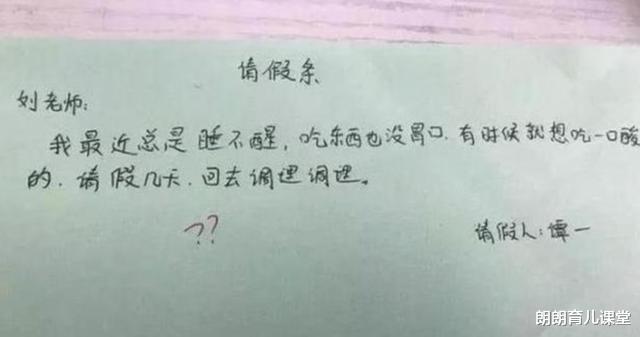 请假条
刘老师:
我最近总是睡不醒,吃东西也没胃口.有时候就想吃一口酸
的.请假几天.回去调理调理。
??
请假人:谭一
朗朗育儿课堂